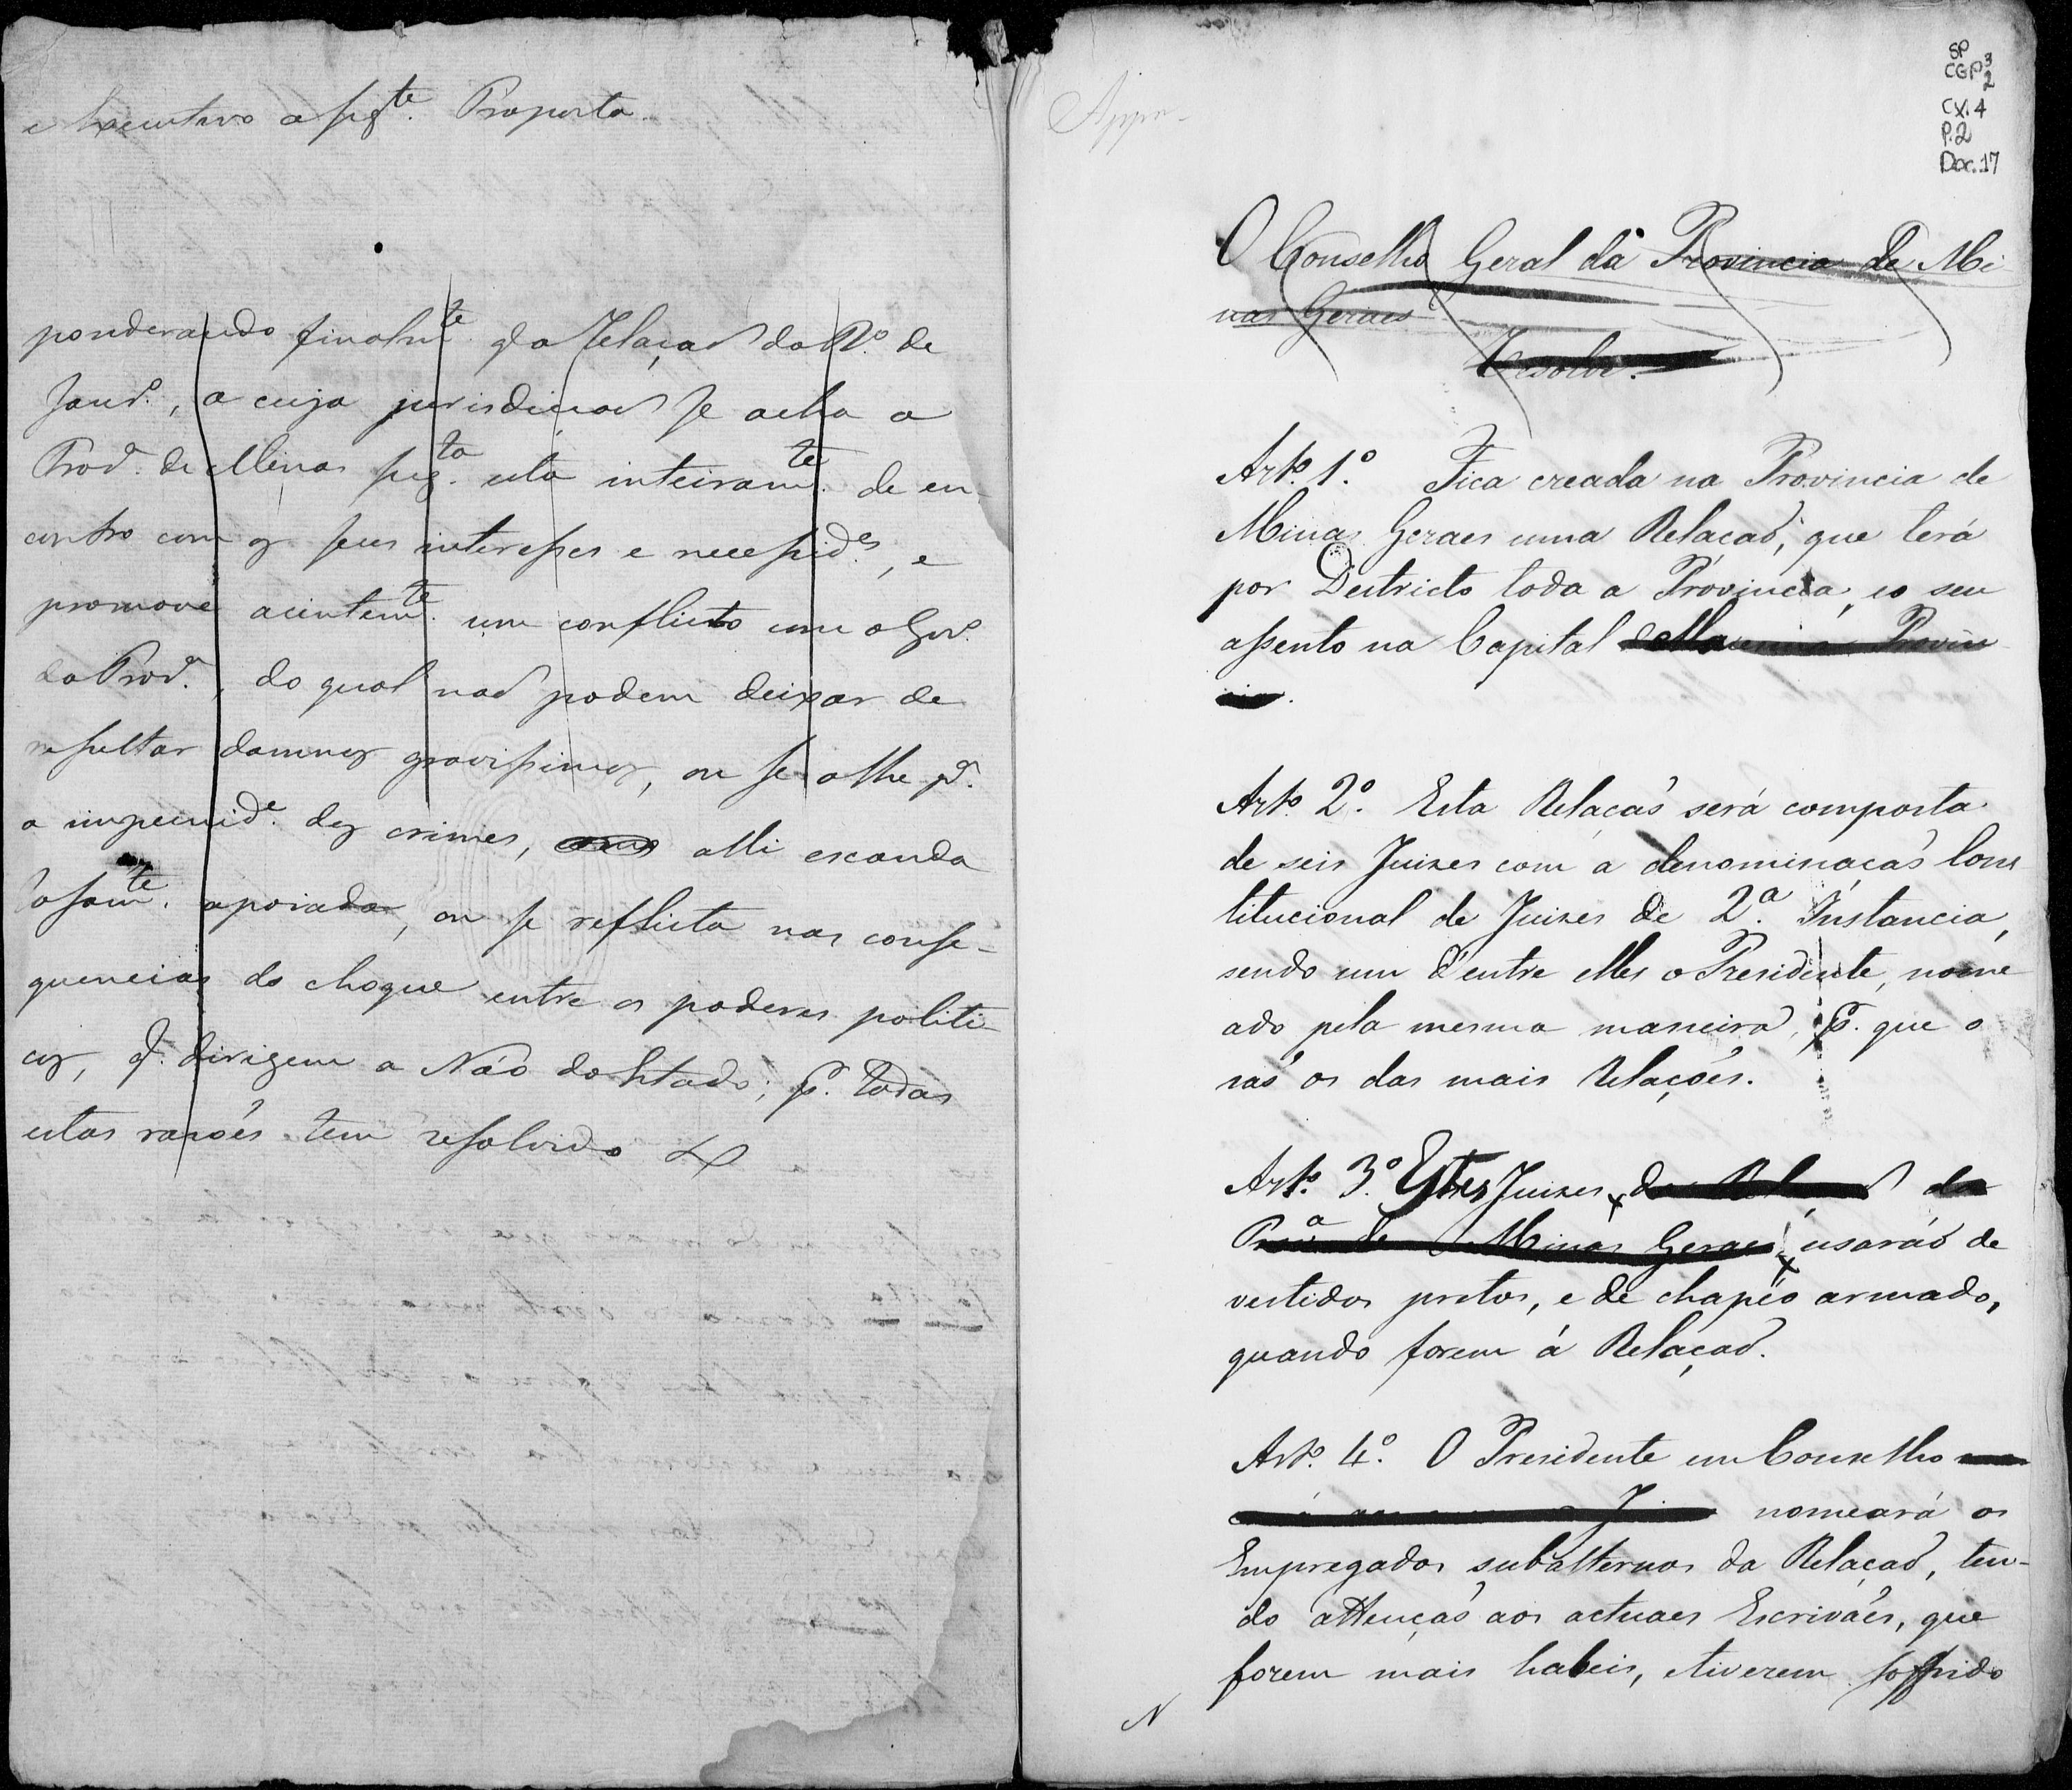 e Executivo a seg.te Proposta.
ponderando finalm.te q̃ a Relação do R.º de
Janr.º, a cuja jurisdicção se acha a
Prov.ª de Minas sug.ta está inteiram.te de en-
contro com os seus interesses e necessid.es, e
promove acintem.te um conflicto com o Gov.º
da Prov.ª, do qual não podem deixar de
resultar damnos gravissimos, ou se olhe p.ª
a impunid.e dos crimes, alli escanda
losam.te apoiada, ou se reflicta nas conse-
quencias do choque entre os poderes politi-
cos, q.' dirigem a Náo do Estado; p.r todas
estas rasões tem resolvido &
SP
CGP 3
2
CX. 4
P. 2
Doc. 17
Appr-
O Conselho Geral da Provincia de Mi
nas Geraes
Resolve.
Art.º 1.º Fica creada na Provincia de
Minas Geraes uma Relação, que terá
por Destricto toda a Provincia, e o seu
assento na Capital da Mesma Provin
cia.
Art.º 2.º Esta Relação será composta
de seis Juizes com a denominação Cons
titucional de Juizes de 2.ª Instancia,
sendo um d'entre elles o Presidente, nome
ado pela mesma maneira, p.r que o
são os das mais Relações.
Art.º 3.º Estes Juizes da Relação da
Prov.ª de Minas Geraes usarão de
vestidos pretos, e de chapéo armado,
quando forem á Relação.
Art.º 4.º O Presidente em Conselho
nomeará os
Empregados subalternos da Relação, ten-
do attenção aos actuaes Escrivães, que
forem mais habeis, e tiverem soffrido
N